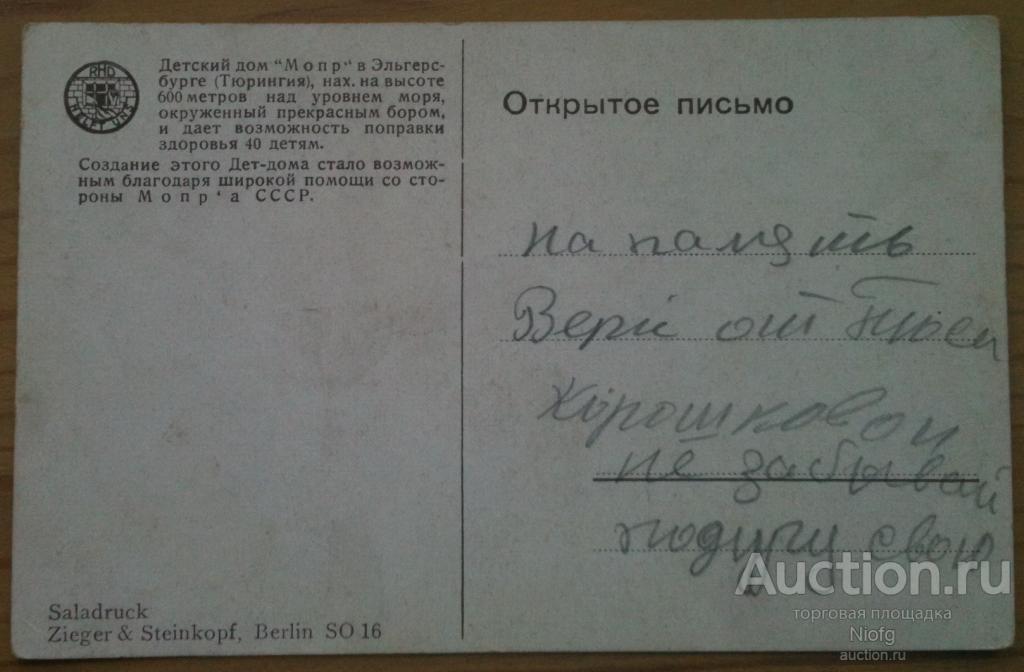 RHD
HELFT UNS
Детский дом "Мопр" в Эльгерс-
бурге (Тюрингия), нах. на высоте
600 метров над уровнем моря,
окруженный прекрасным бором,
и дает возможность поправки
здоровья 40 детям.
Создание этого Дет-дома стало возмож-
ным благодаря широкой помощи со сто-
роны Мопр‘а СССР.
Saladruck
Zieger & Steinkopf, Berlin SO 16
Открытое письмо
на память
Вери от
Хорошковой
не забывай
подругу свою
Auction.ru
торговая площадка
Niofg
auction.ru